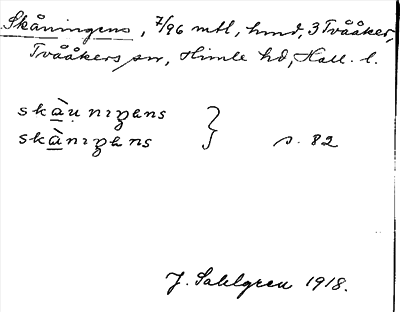 Skåningens, 7/96 mtl, hmd, 3 Tvååker,
Tvååkers sn, Himle hd, Hall. l.
skàu̇niŋens }
skàniŋens } s. 82
J. Sahlgren 1918.